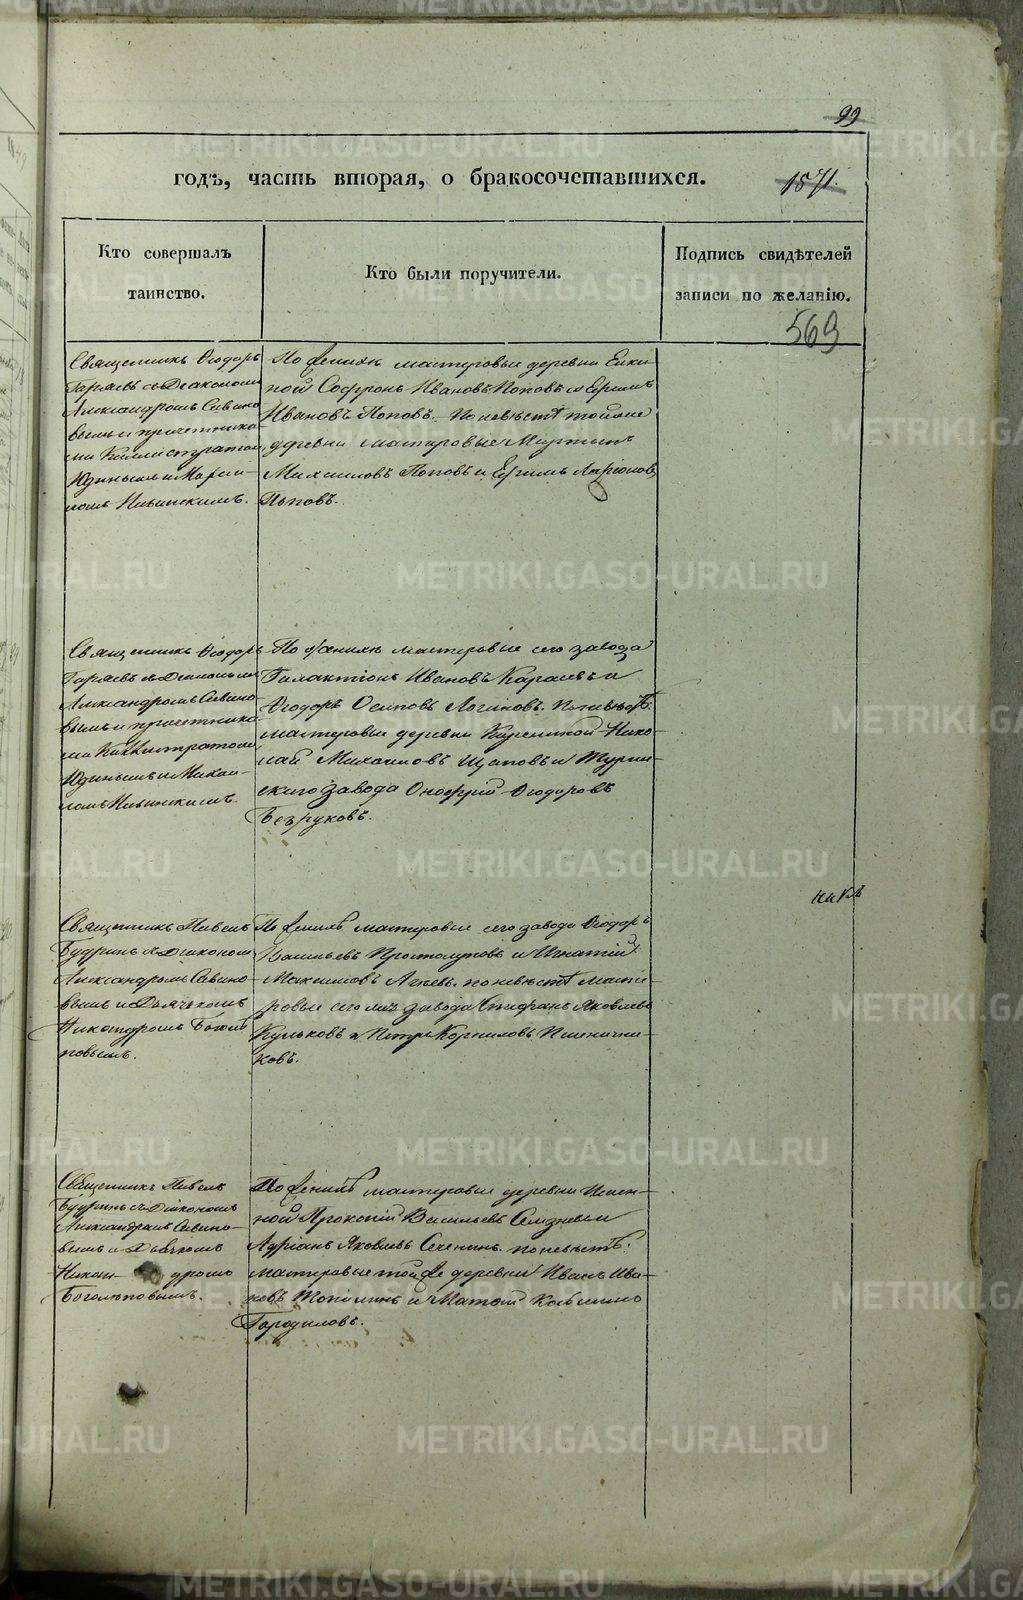 99
годъ, часть вторая, о бракосочетавшихся.
1571.
Кто совершалъ
таинство.
Кто были поручители.
Подпись свидѣтелей
записи по желанію.
569
Священникъ Ѳеодоръ
Горяевъ съ Діакономъ
Александромъ Савино
вымъ и причетника
ми Каллистратомъ
Юдинымъ и
номъ
По женихѣ мастеровые деревни Елки
ной Софронъ Ивановъ Поповъ и Ефимъ
Ивановъ Поповъ. По невѣстѣ той же
деревни мастеровые Мартынъ
Михаиловъ Поповъ и Ефимъ Ларіоновъ
Поповъ.
Священникъ Ѳеодоръ
Горяевъ съ Діакономъ
Александромъ Савино
вымъ и причетника
ми Каллистратомъ
Юдинымъ и Михаи-
ломъ
По женихѣ мастеровые сего завода
Галактіонъ Ивановъ Караевъ и
Ѳеодоръ Осиповъ Логиновъ. По невѣстѣ:
мастеровые деревни Нико-
лай Михаиловъ Щаповъ и Турин-
скаго завода Онофрій Ѳеодоровъ
Безруковъ.
Священникъ Павелъ
Будринъ съ Діакономъ
Александромъ Савино-
вымъ и Дьячкомъ
Никандромъ Боголѣ
повымъ.
По женихѣ мастеровые сего завода Ѳеодоръ
Васильевъ и Игнатій
Максимовъ по невѣстѣ масте
ровые сего же завода Стефанъ Яковлевъ
Кульковъ и Петръ Корниловъ Пшенични
ковъ.
Священникъ Павелъ
Будринъ съ Діакономъ
Александромъ Савино-
вымъ и Дьячкомъ
Никан- дромъ
Боголѣповымъ.
По женихѣ мастеровые деревни
ной Прокопій Васильевъ Селезневъ и
Адріанъ Яковлевъ по невѣстѣ:
мастеровые той же деревни Иванъ Ива-
новъ и
Городиловъ.
METRIKI.GASO-URAL.RU